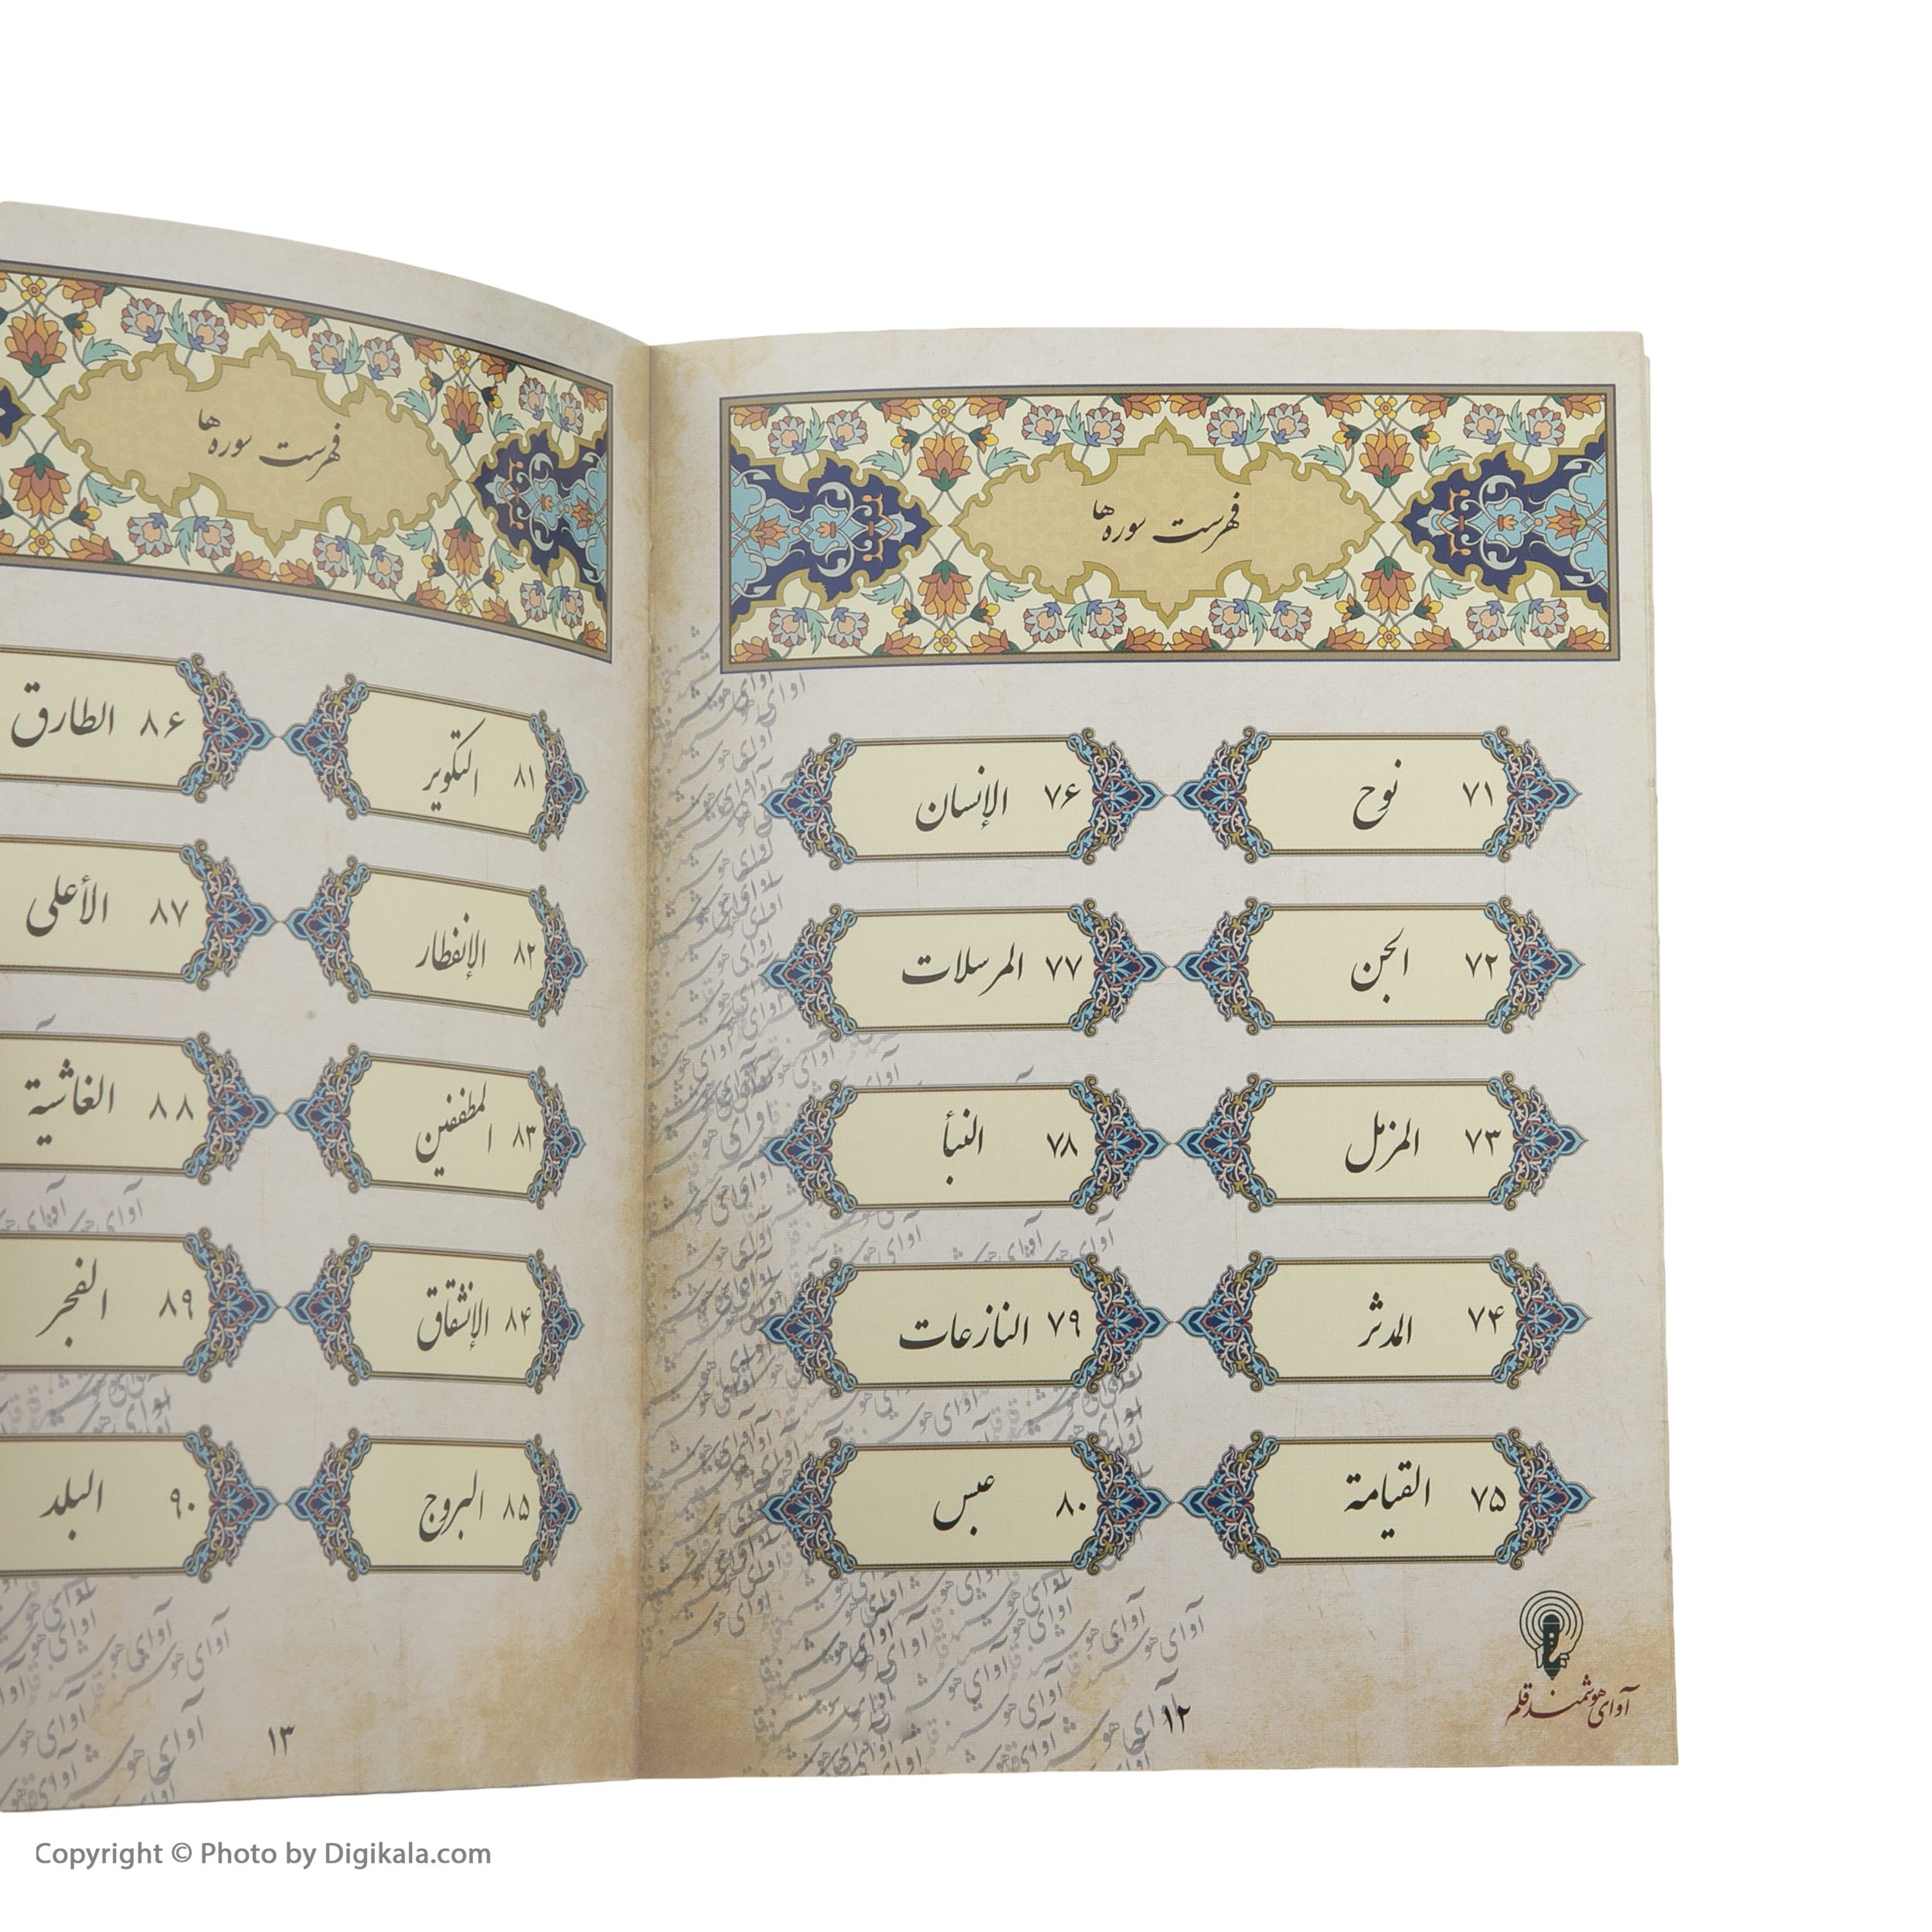 فهرست سوره‌ها
۷۱ نوح
۷۶ الإنسان
۷۲ الجن
۷۷ المرسلات
۷۳ المزمل
۷۸ النبأ
۷۴ المدثر
۷۹ النازعات
۷۵ القيامة
۸۰ عبس
آوای هوشمند قلم
۱۲
فهرست سوره‌ها
۸۱ التكوير
۸۶ الطارق
۸۲ الإنفطار
۸۷ الأعلى
۸۳ المطففين
۸۸ الغاشية
۸۴ الإنشقاق
۸۹ الفجر
۸۵ البروج
۹۰ البلد
۱۳
Copyright © Photo by Digikala.com